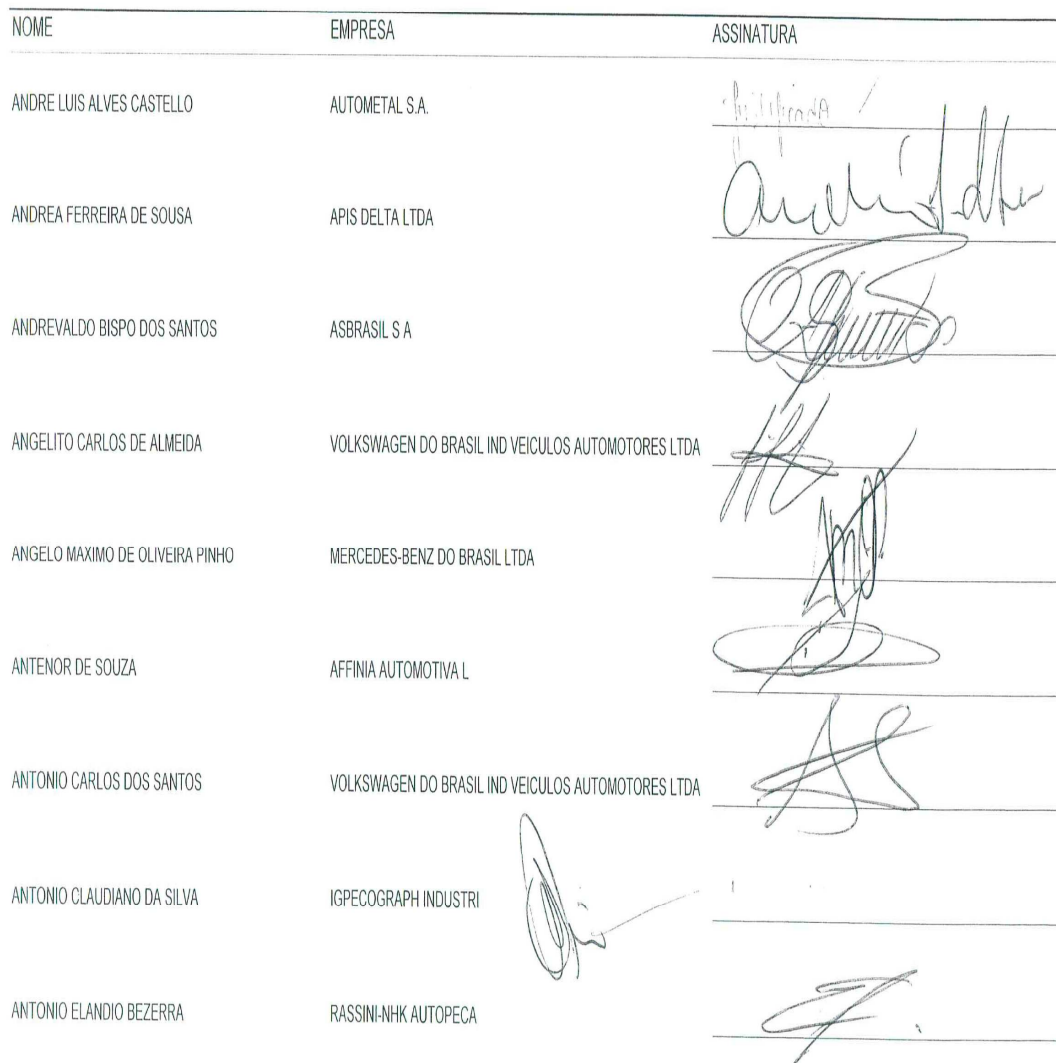 NOME EMPRESA ASSINATURA
ANDRE LUIS ALVES CASTELLO AUTOMETAL S.A.
ANDREA FERREIRA DE SOUSA APIS DELTA LTDA
ANDREVALDO BISPO DOS SANTOS ASBRASIL S A
ANGELITO CARLOS DE ALMEIDA VOLKSWAGEN DO BRASIL IND VEICULOS AUTOMOTORES LTDA
ANGELO MAXIMO DE OLIVEIRA PINHO MERCEDES-BENZ DO BRASIL LTDA
ANTENOR DE SOUZA AFFINIA AUTOMOTIVA L
ANTONIO CARLOS DOS SANTOS VOLKSWAGEN DO BRASIL IND VEICULOS AUTOMOTORES LTDA
ANTONIO CLAUDIANO DA SILVA IGPECOGRAPH INDUSTRI
ANTONIO ELANDIO BEZERRA RASSINI-NHK AUTOPECA